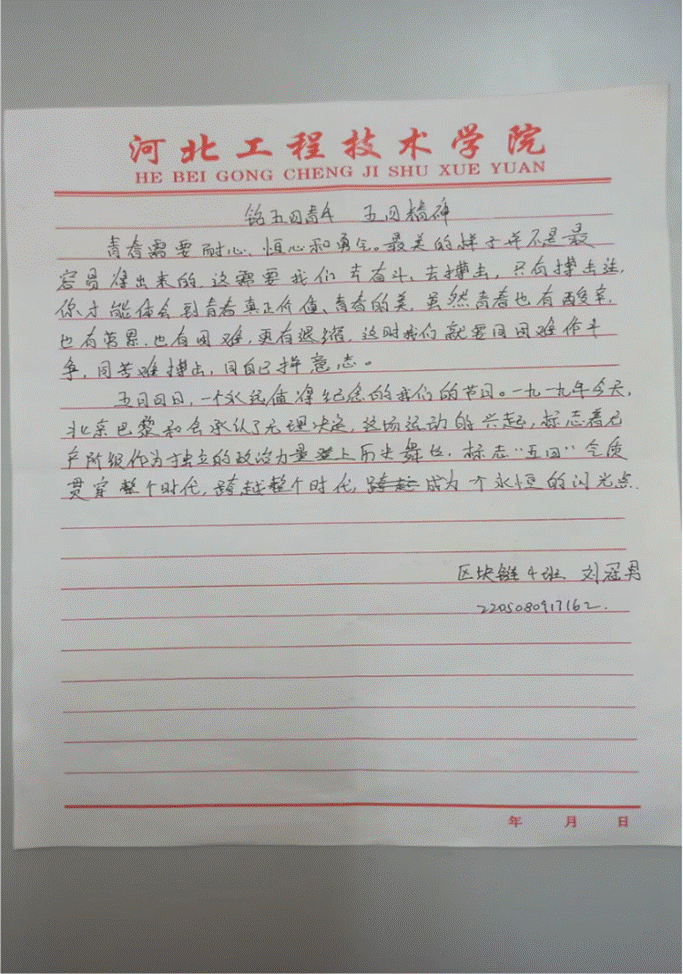 河北工程技术学院
HE BEI GONG CHENG JI SHU XUE YUAN
铭五四青年 五四精神
青春需要耐心、恒心和勇气。最美的样子并不是最
容易得出来的,这需要我们去奋斗,去搏击,只有搏击过,
你才能体会到青春真正价值、青春的美,虽然青春也有酸辛,
也有劳累,也有困难,更有退缩,这时我们就要同困难作斗
争,同苦难搏击,同自己拼意志。
五月四日,一个永远值得纪念的我们的节日。一九一九年今天,
北京巴黎和会承认了无理决定,这场运动的兴起,标志着无
产阶级作为独立的政治力量登上历史舞台,标志“五四”气质
贯穿整个时代,跨越整个时代,成为一个永恒的闪光点.
区块链4班 刘冠男
2205080917162.
年 月 日